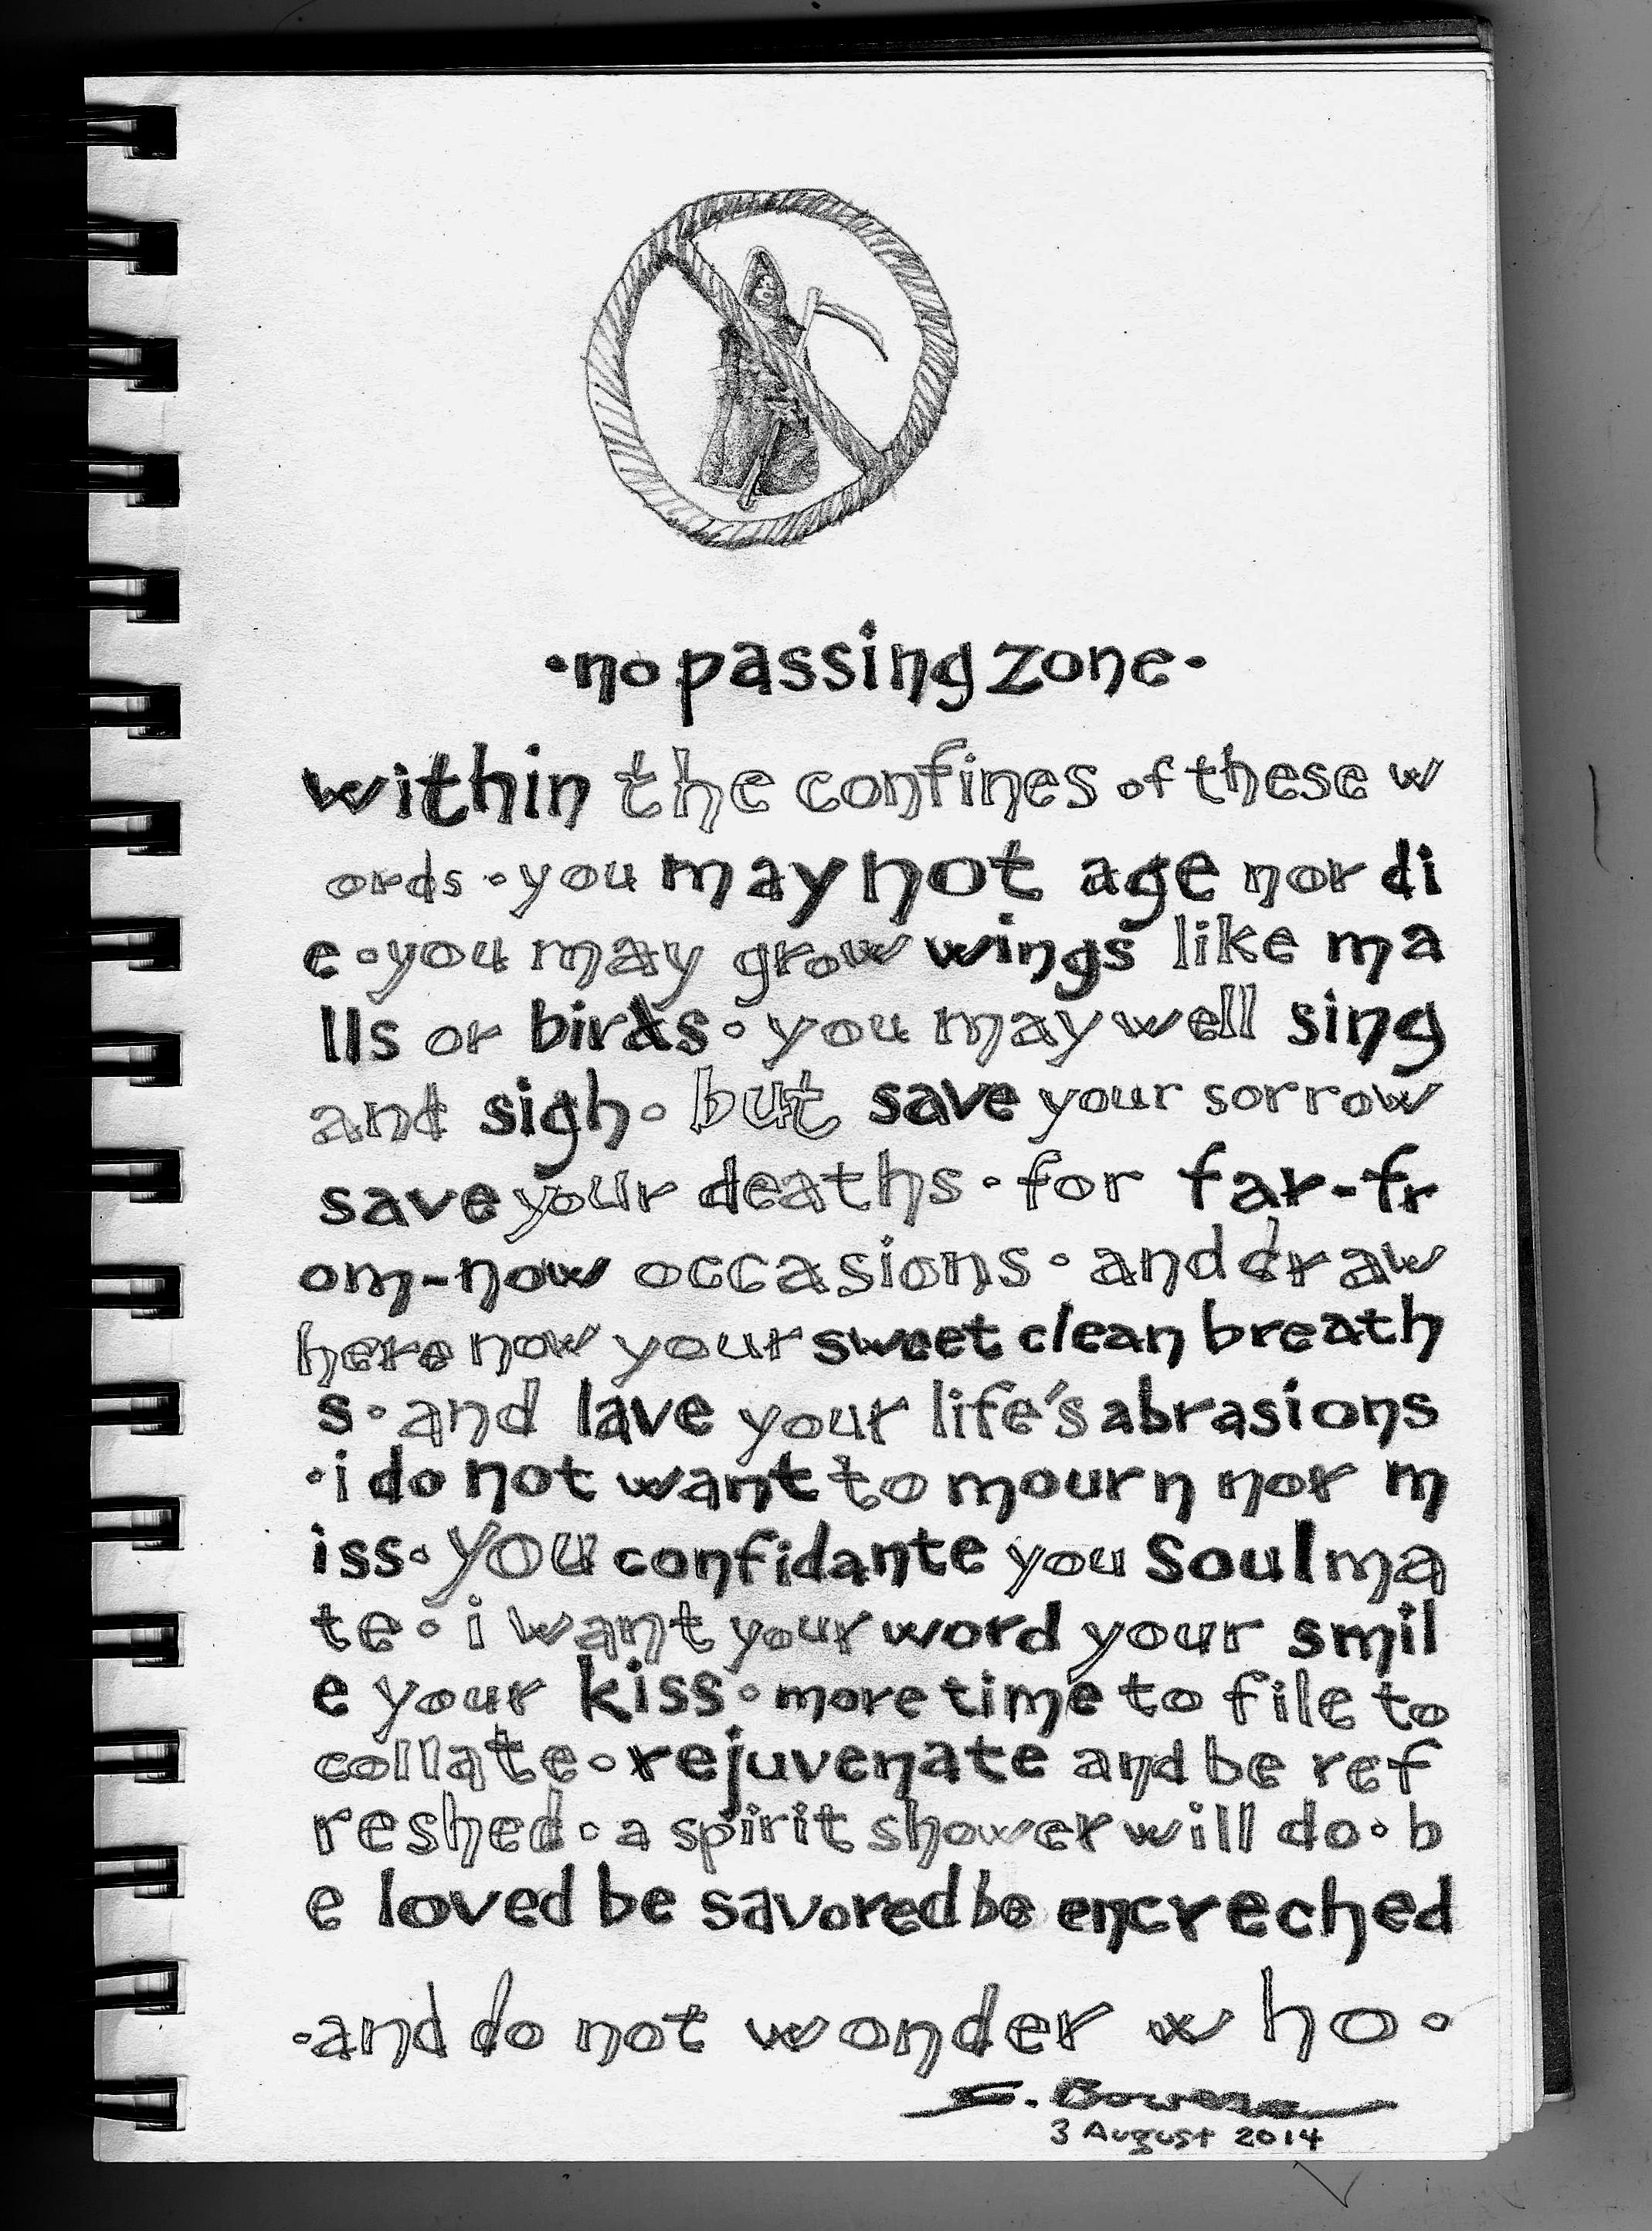 •no passing zone•
within the confines of these w
ords•you may not age nor di
e•you may grow wings like ma
lls or birds•you may well sing
and sigh•but save your sorrow
save your deaths•for far-fr
om-now occasions•and draw
here now your sweet clean breath
s•and lave your life's abrasions
•i do not want to mourn nor m
iss•you confidante you soulma
te•i want your word your smil
e your kiss•more time to file to
collate•rejuvenate and be ref
reshed•a spirit shower will do•b
e loved be savored be encreched
•and do not wonder who•
S. Bowen
3 August 2014